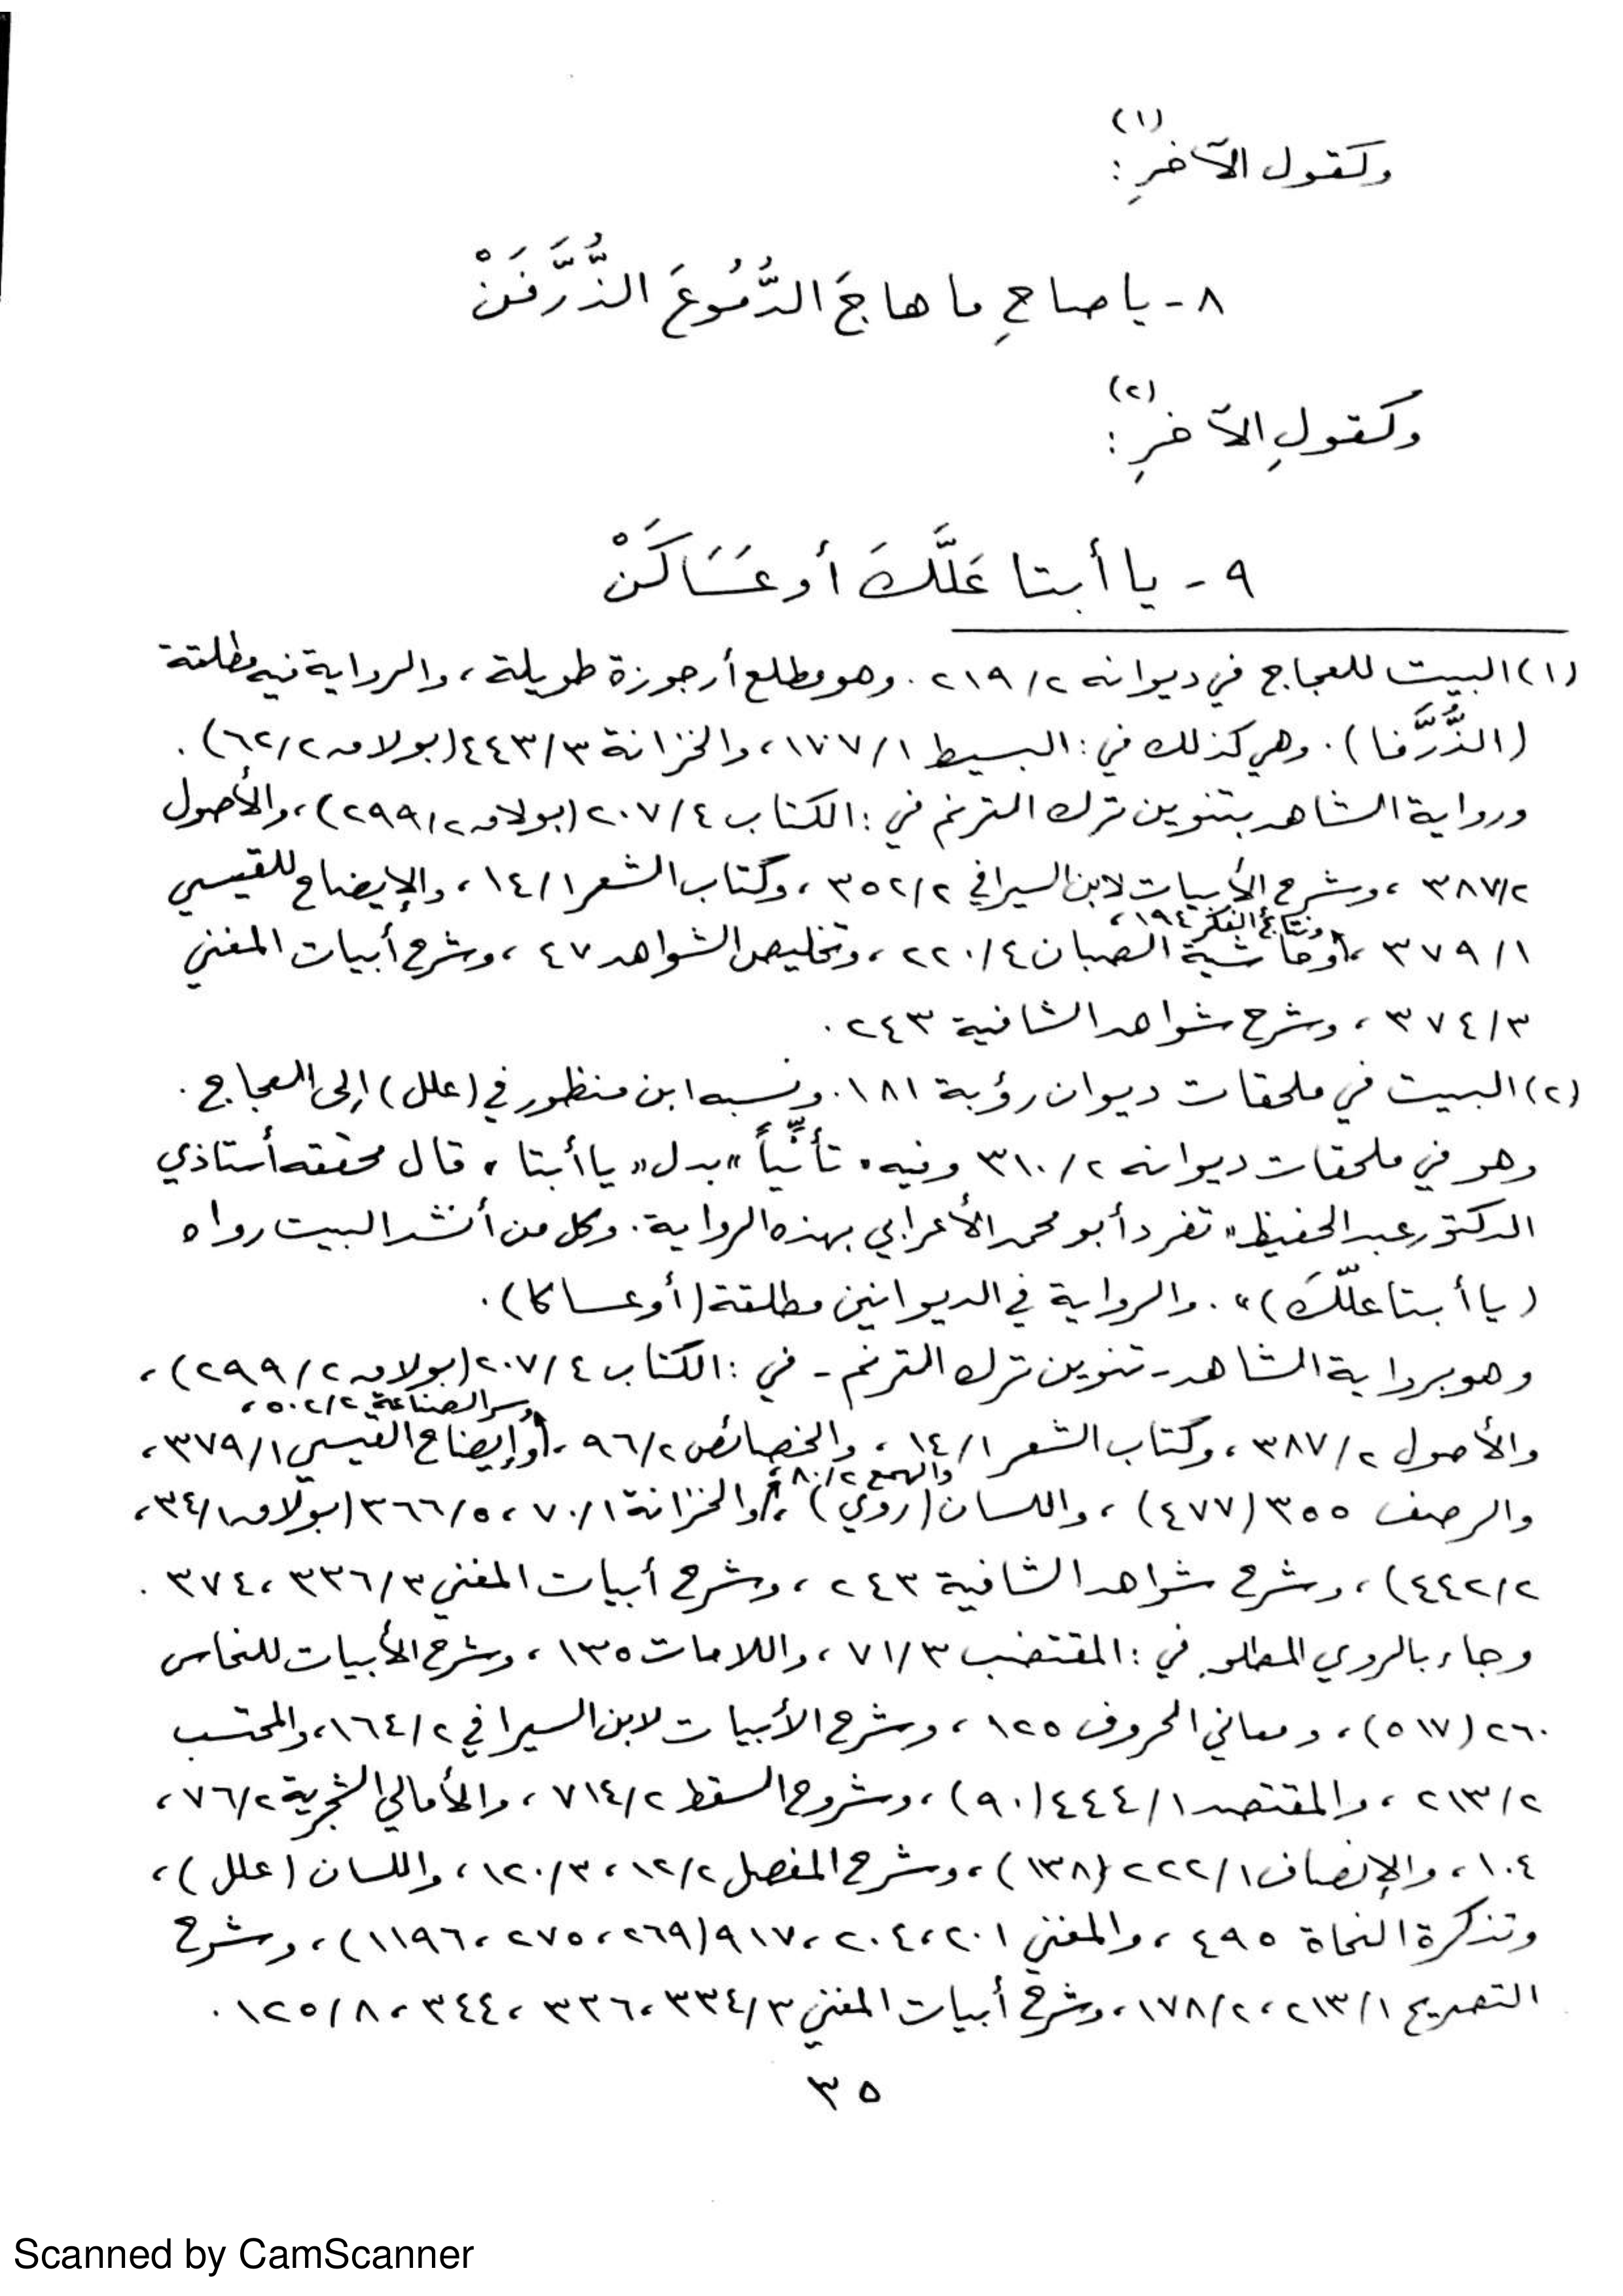 (١)
وكقول الآخرِ :
٨ - يا صاحِ ما هاجَ الدُّمُوعَ الذُّرَّفَنْ
(٢)
وكقولِ الآخرِ :
٩ - يا أبتا عَلَّكَ أو عَسَاكَنْ
(١) البيت للعجاج في ديوانه ٢/٢١٩. وهو مطلع أرجوزة طويلة، والرواية فيه مطلقة
(الذُّرَّفا). وهي كذلك في: البسيط ١/١٧٧، والخزانة ٣/٤٤٣ (بولاق ٢/٦٢).
ورواية الشاهد بتنوين ترك الترنم في: الكتاب ٤/٢٠٧ (بولاق ٢/٢٩٩)، والأصول
٢/٣٨٧، وشرح الأبيات لابن السيرافي ٢/٣٥٢، وكتاب الشعر ١/١٤، والإيضاح للقيسي
ونتائج الفكر ١٩٤،
١/٣٧٩، وحاشية الصبان ٤/٢٢٠، وتخليص الشواهد ٤٧، وشرح أبيات المغني
٣/٣٧٤، وشرح شواهد الشافية ٢٤٣.
(٢) البيت في ملحقات ديوان رؤبة ١٨١. ونسبه ابن منظور في (علل) إلى العجاج.
وهو في ملحقات ديوانه ٢/٣١٠ وفيه " تأنِّياً " بدل " يا أبتا " قال محققه أستاذي
الدكتور عبد الحفيظ " تفرد أبو محمد الأعرابي بهذه الرواية. وكل من أنشد البيت رواه
(يا أبتا علّكَ) ". والرواية في الديوانين مطلقة (أو عساكا).
وهو برواية الشاهد - تنوين ترك الترنم - في: الكتاب ٤/٢٠٧ (بولاق ٢/٢٩٩)،
وسر الصناعة ٢/٥٠٢،
والأصول ٢/٣٨٧، وكتاب الشعر ١/١٤، والخصائص ٢/٩٦، وإيضاح القيسي ١/٣٧٩،
والهمع ٢/٨٠،
والرصف ٣٥٥ (٤٧٧)، واللسان (روي)، والخزانة ١/٧٠، ٥/٣٦٦ (بولاق ١/٣٤،
٢/٤٤٢)، وشرح شواهد الشافية ٢٤٣، وشرح أبيات المغني ٣/٣٣٦، ٣٧٤.
وجاء بالروي المطلق في: المقتضب ٣/٧١، واللامات ١٣٥، وشرح الأبيات للنحاس
٢٦٠ (٥١٧)، ومعاني الحروف ١٢٥، وشرح الأبيات لابن السيرافي ٢/١٦٤، والمحتسب
٢/٢١٣، والمقتصد ١/٤٤٤ (٩٠)، وشروح السقط ٢/٧١٤، والأمالي الشجرية ٢/٧٦،
١٠٤، والإنصاف ١/٢٢٢ (١٣٨)، وشرح المفصل ٢/١٢، ٣/١٢٠، واللسان (علل)،
وتذكرة النحاة ٤٩٥، والمغني ٢٠١، ٢٠٤، ٩١٧ (٢٦٩، ٢٧٥، ١١٩٦)، وشرح
التصريح ١/٢١٣، ٢/١٧٨، وشرح أبيات المغني ٣/٣٣٤، ٣٣٦، ٣٤٤، ٨/١٢٥.
٣٥
Scanned by CamScanner